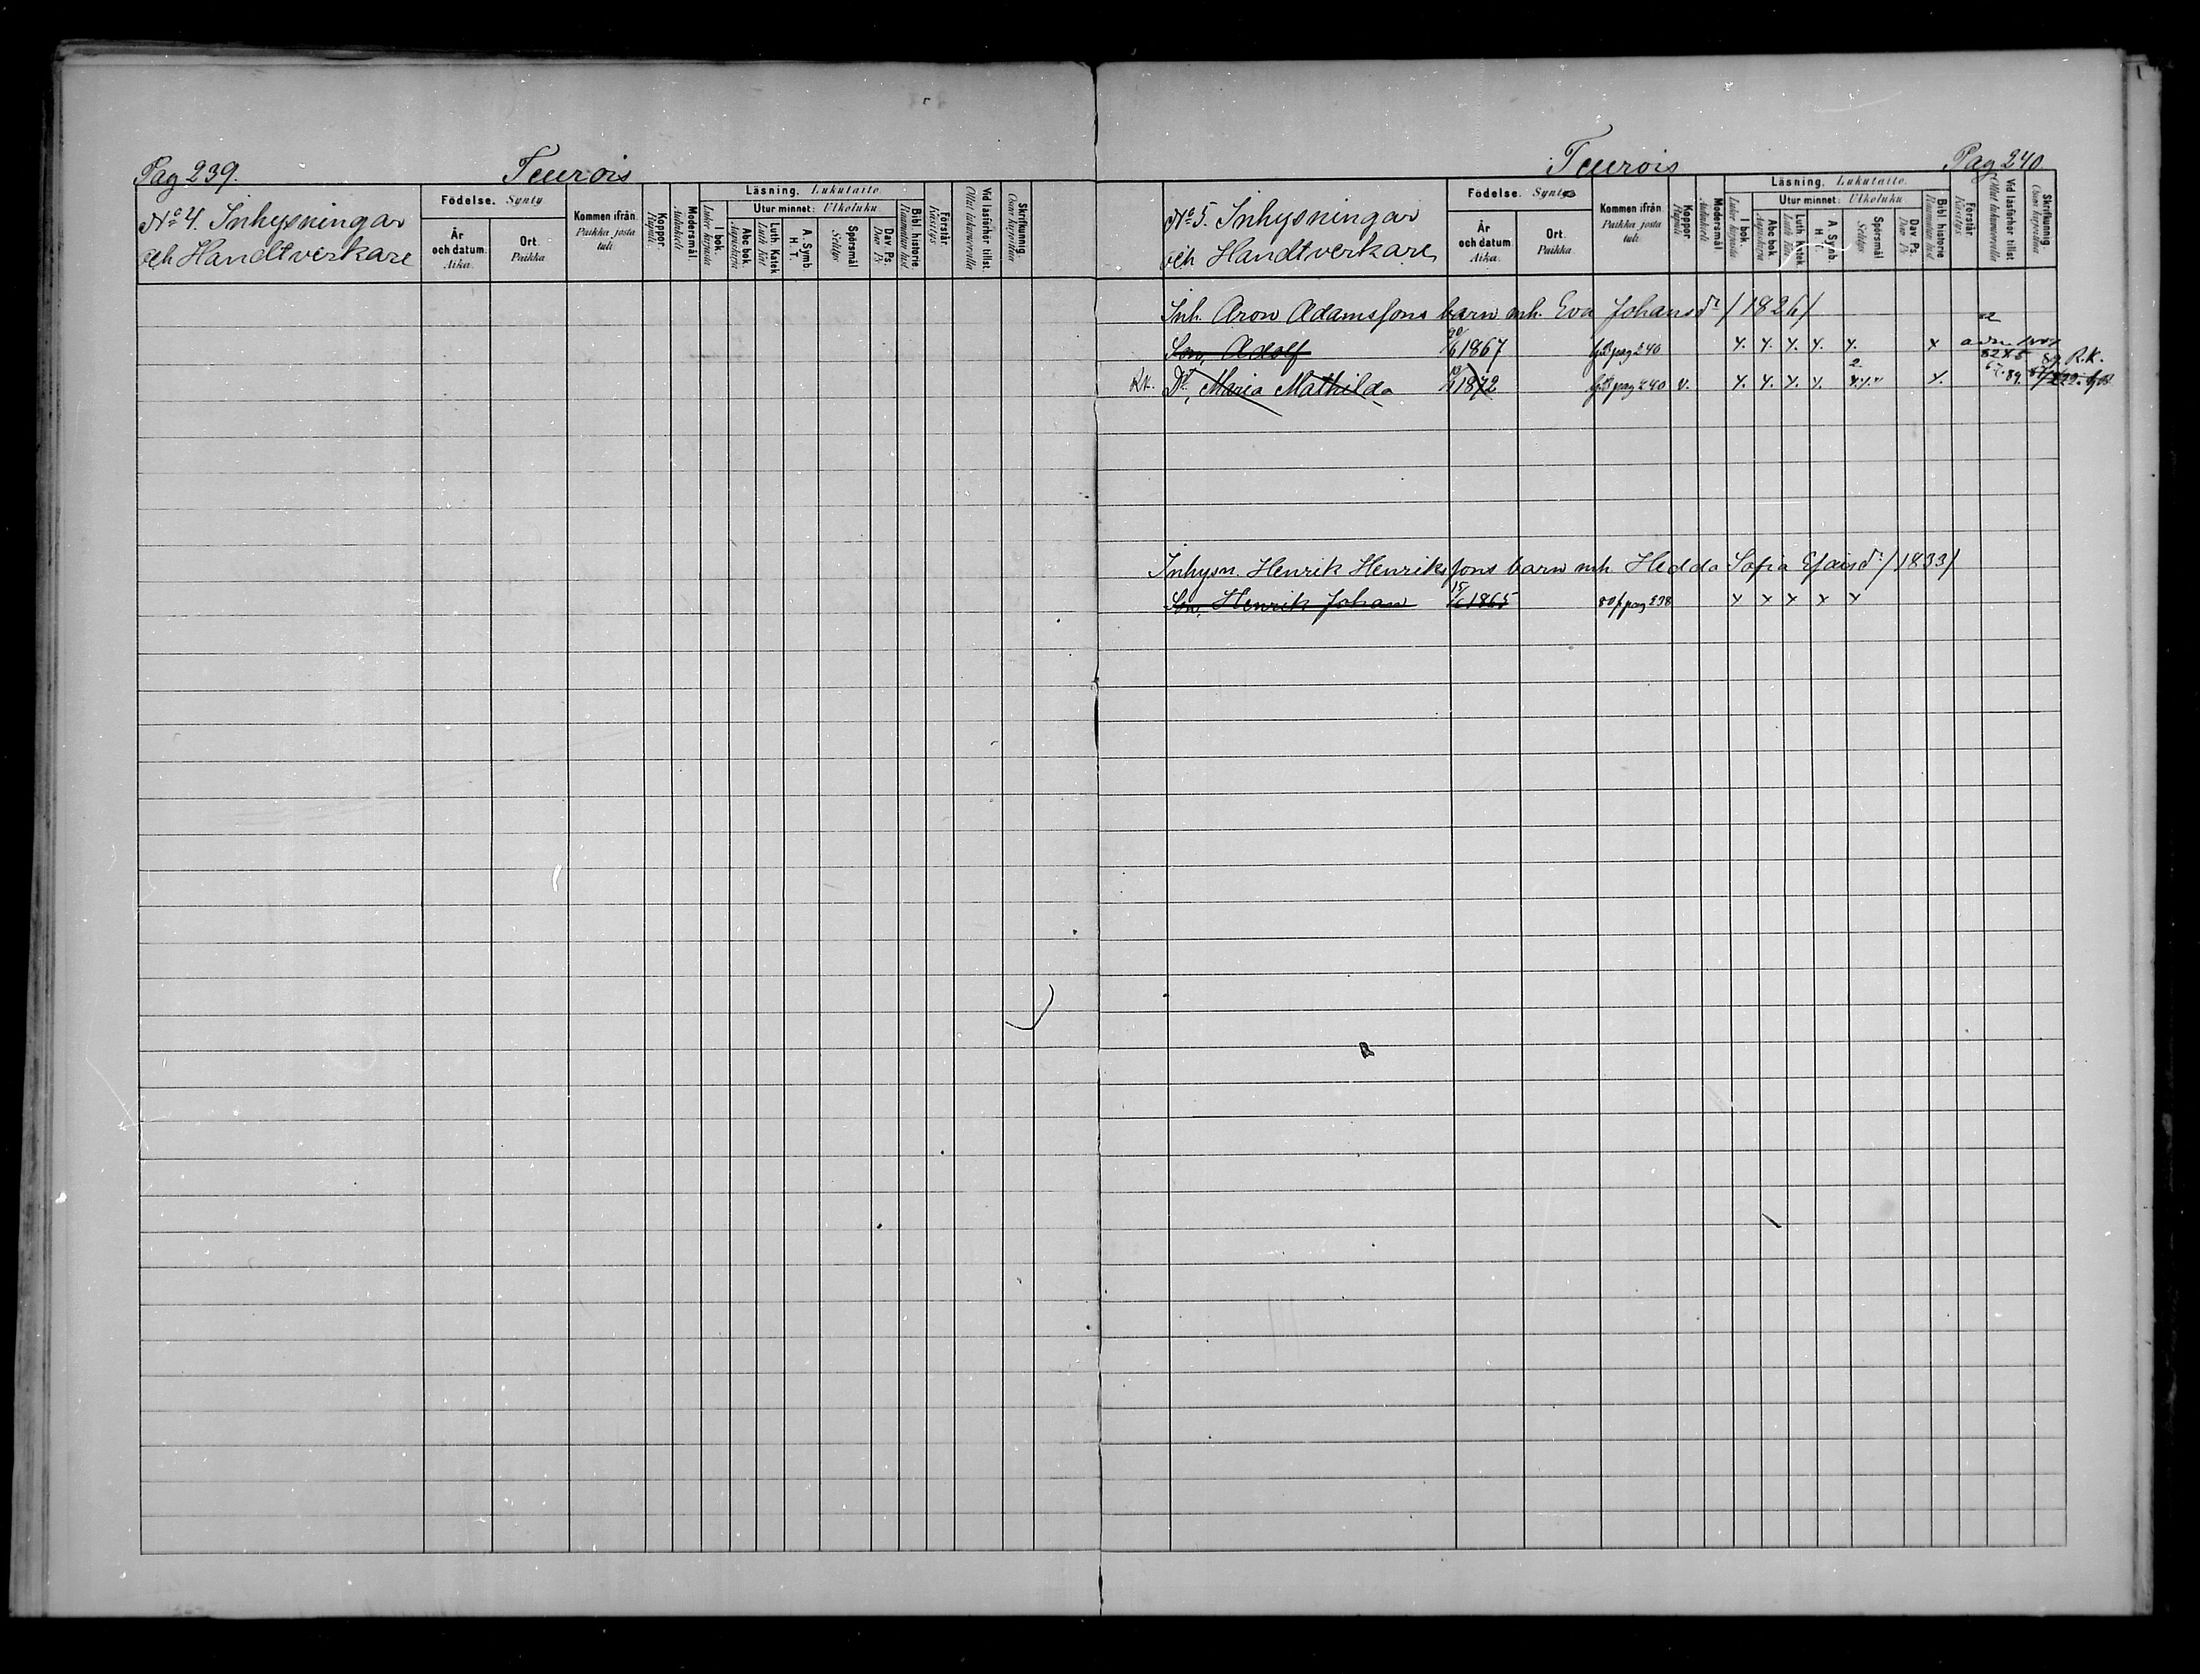 Pag 239.
Teurois
No 4. Inhysningar
och Handtverkare
Födelse. Synty
År och datum. Aika.
Ort. Paikka
Kommen ifrån. Paikka josta tuli.
Koppor. Rupuli
Modersmål. Äidinkieli
Läsning. Lukutaito.
I bok. Lukee kirjasta
Utur minnet: Ulkoluku
Abc bok. Aapiskirja
Luth. Katek. Luth. Kat.
A. Symb. H. T.
Spörsmål Selitys
Dav. Ps. Dav. Ps.
Bibl. historie Raamatun hist.
Förstår. Käsitys
Vid läsförhör tillst. Ollut lukuvuorolla
Skrifkunnig. Osaa kirjoittaa
Teurois
Pag 240
No 5. Inhysningar
och Handtverkare
Födelse. Synty
År och datum. Aika.
Ort. Paikka.
Kommen ifrån. Paikka josta tuli.
Koppor. Rupuli
Modersmål. Äidinkieli
Läsning. Lukutaito.
I bok. Lukee kirjasta
Utur minnet: Ulkoluku
Abc bok. Aapiskirja
Luth. Katek. Luth. Kat.
A. Symb. H. T.
Spörsmål Selitys
Dav. Ps. Dav. Ps.
Bibl. historie Raamatun hist.
Förstår. Käsitys
Vid läsförhör tillst. Ollut lukuvuorolla
Skrifkunnig. Osaa kirjoittaa
Inh. Aron Adamssons barn mh. Eva Johansdr /1826/
Son, Adolf 20/6 1867 pag 240 x. x. x. x. x. x
Rk. Dr, Maria Mathilda 1872 pag 240 v. x. x. x. x. x. 89. R.K.
Inhysn. Henrik Henrikssons barn mh. Hedda Sofia Esaisdr /1833/
Son, Henrik Johan 15/6 1865 pag 238 x x x x x